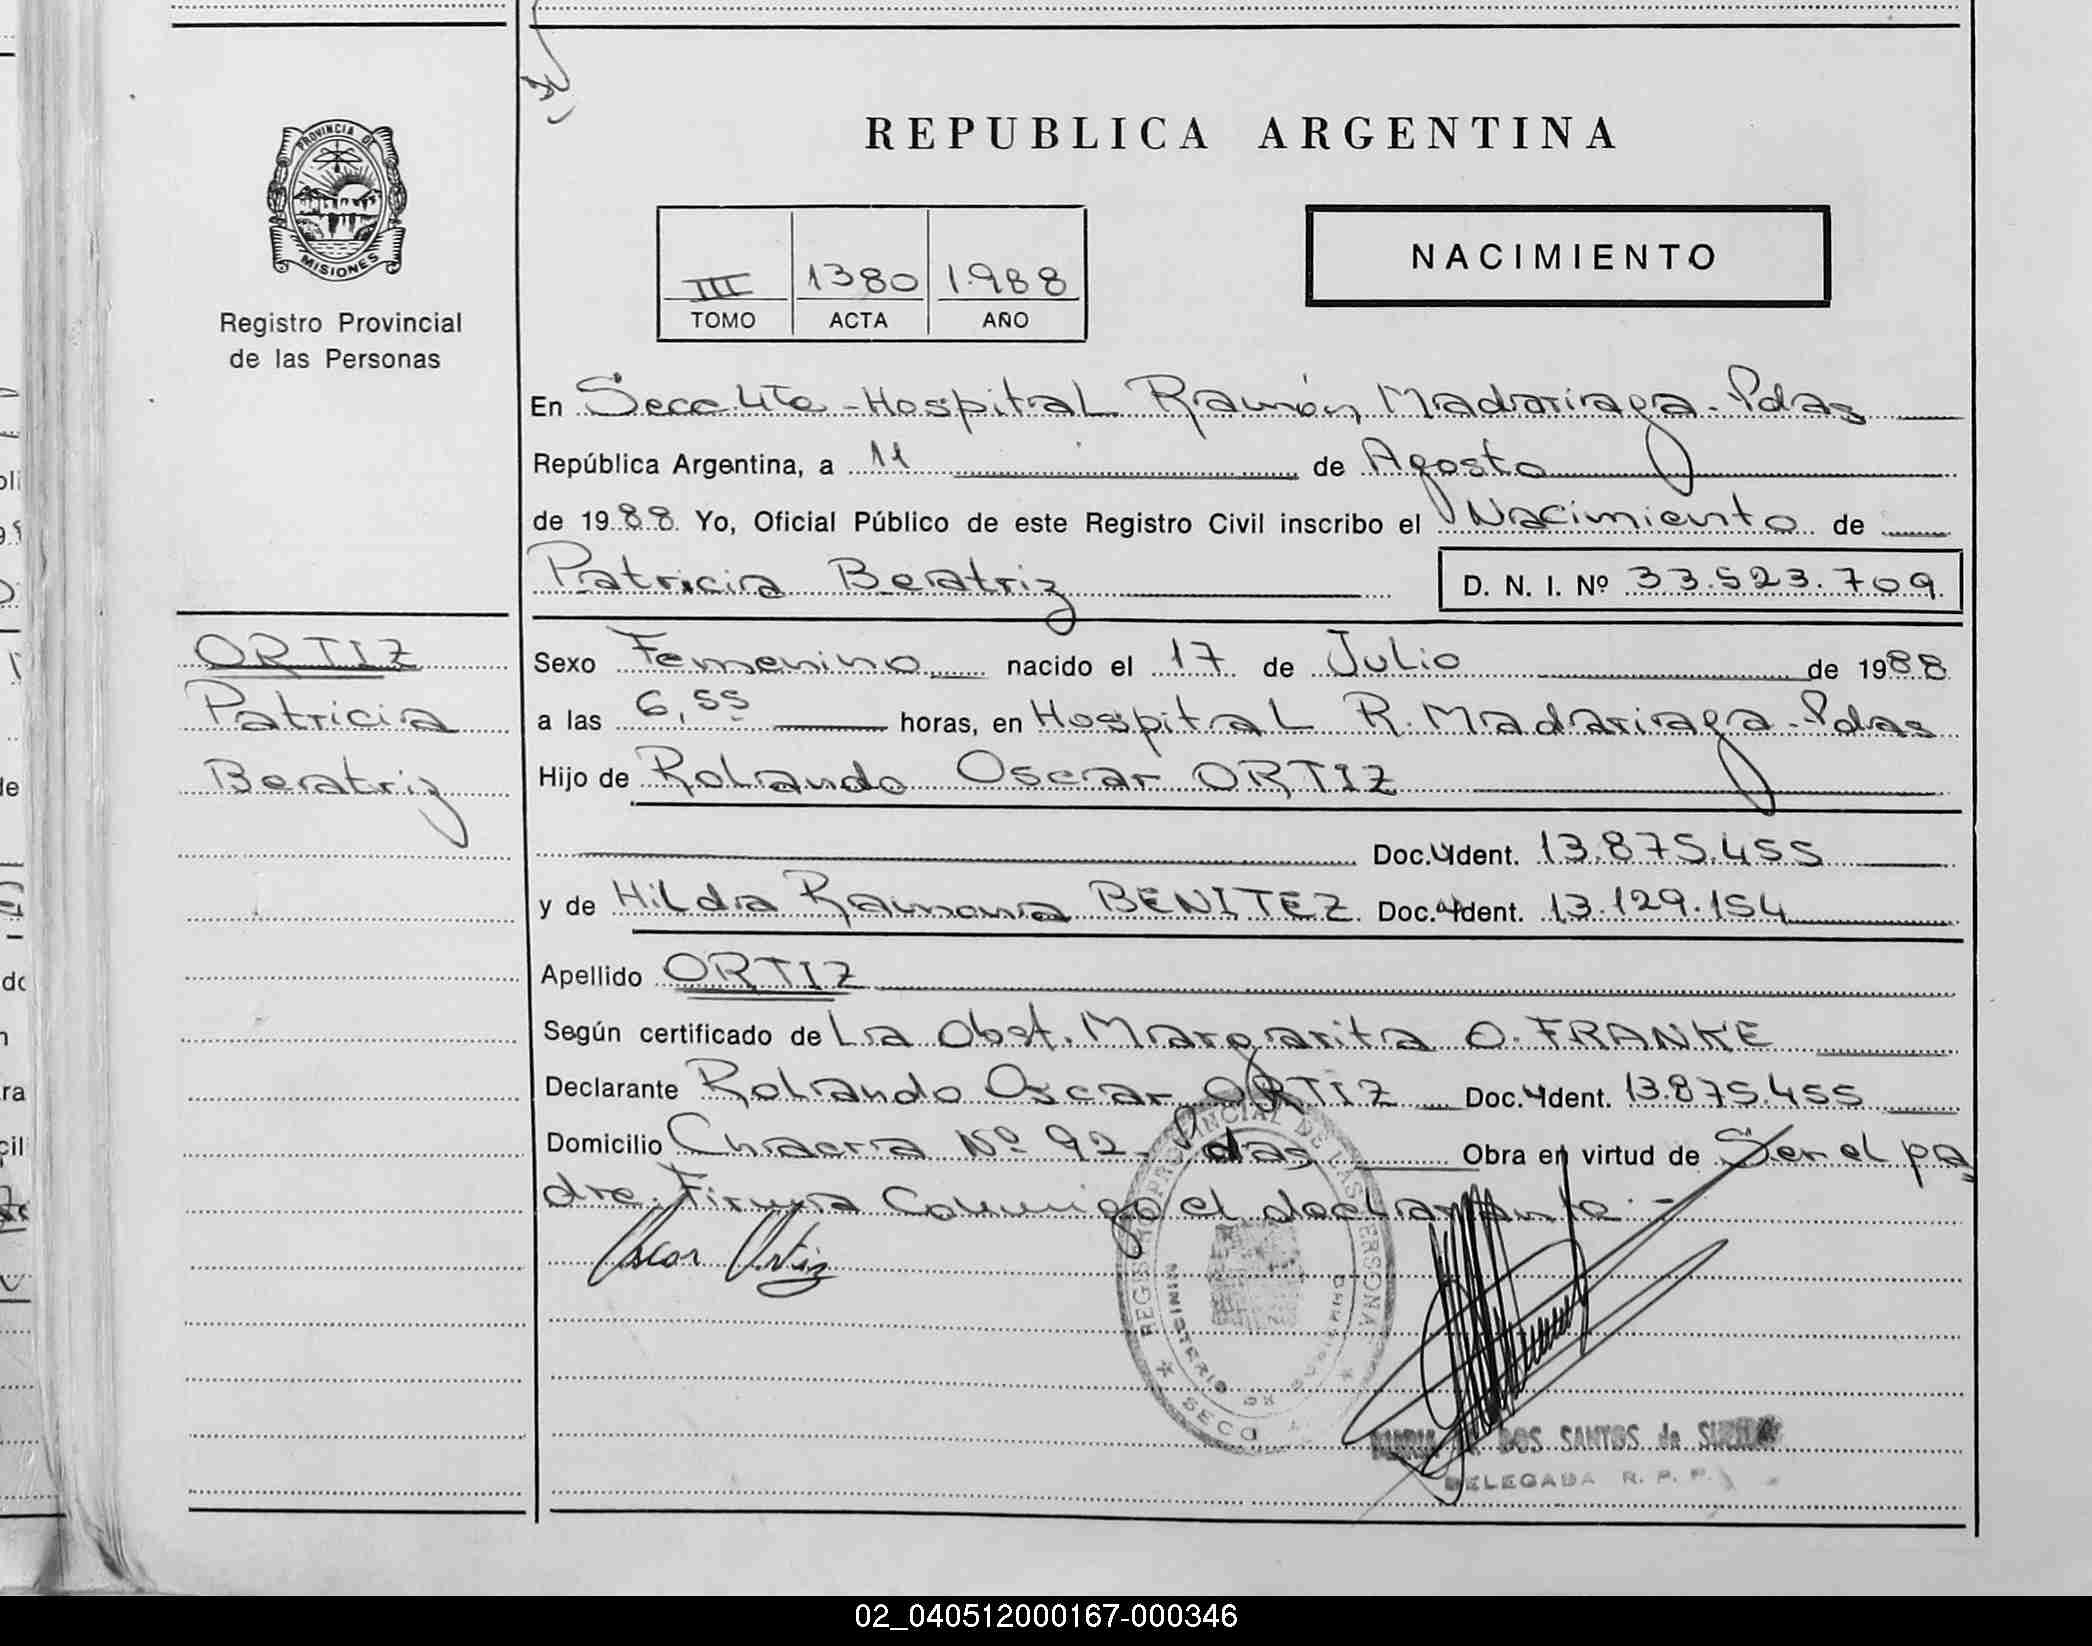 REPUBLICA ARGENTINA
PROVINCIA DE
MISIONES
Registro Provincial
de las Personas
NACIMIENTO
III 1380 1.988
TOMO ACTA AÑO
En Secc 4ta - Hospital Ramón Madariaga - Pdas
República Argentina, a 11 de Agosto
de 1988. Yo, Oficial Público de este Registro Civil inscribo el Nacimiento de
Patricia Beatriz D. N. I. Nº 33.523.709
ORTIZ
Patricia
Beatriz
Sexo Femenino nacido el 17 de Julio de 1988
a las 6,55 horas, en Hospital R. Madariaga - Pdas
Hijo de Rolando Oscar ORTIZ
Doc. Ident. 13.875.455
y de Hilda Ramona BENITEZ. Doc. Ident. 13.129.154
Apellido ORTIZ
Según certificado de La Obst. Margarita O. FRANKE
Declarante Rolando Oscar ORTIZ Doc. Ident. 13.875.455
Domicilio Chacra Nº 92 - Pdas Obra en virtud de Ser el pa
dre. Firma Conmigo el declarante. -
Oscar Ortiz
REGISTRO PROVINCIAL DE LAS PERSONAS
MINISTERIO DE
SECC
DOS SANTOS de
DELEGADA R. P. P.
02_040512000167-000346